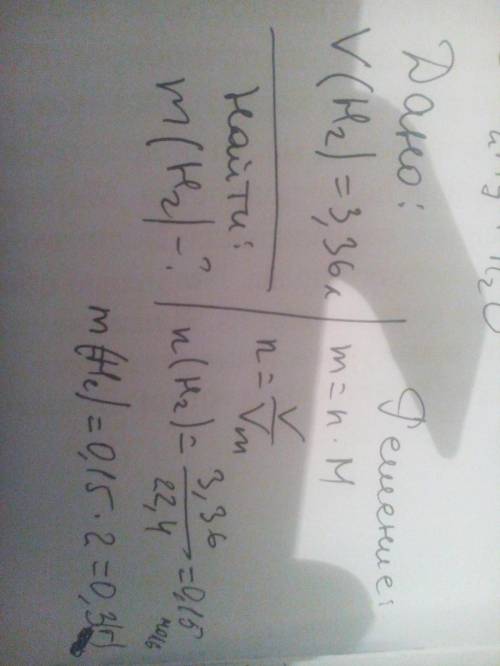 Дано:
V(H₂) = 3,36 л
Найти:
m(H₂) - ?
Решение:
m = n · M
n = V/Vm
n(H₂) = 3,36/22,4 = 0,15 моль
m(H₂) = 0,15 · 2 = 0,3(г)